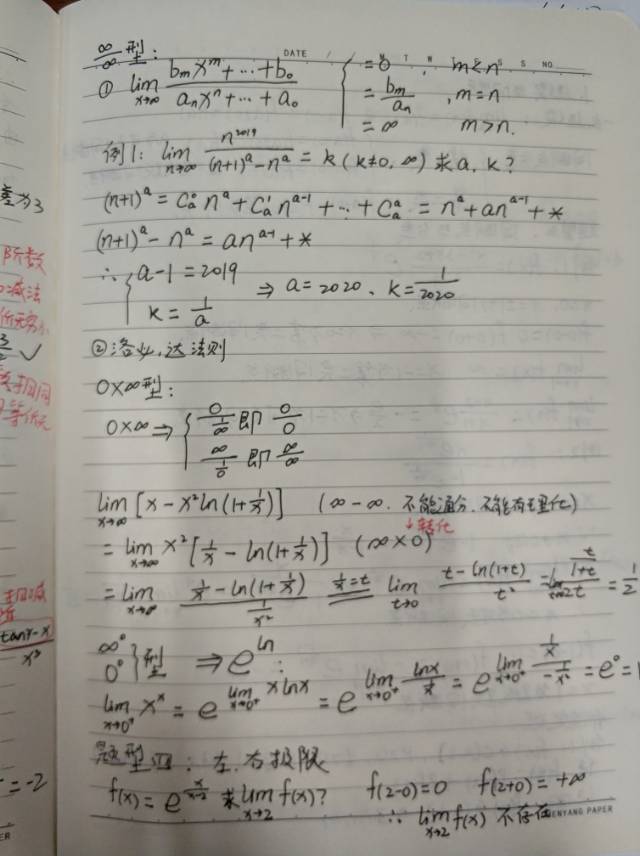 ∞/∞ 型:
DATE M T W T F S S NO.
① lim_{x→∞} (b_m x^m + … + b_0)/(a_n x^n + … + a_0) { = 0, m < n
= b_m/a_n, m = n
= ∞ m > n.
例1: lim_{n→∞} n^{2019}/((n+1)^a - n^a) = k (k≠0, ∞) 求 a, k?
(n+1)^a = C_a^0 n^a + C_a^1 n^{a-1} + … + C_a^a = n^a + an^{a-1} + *
(n+1)^a - n^a = an^{a-1} + *
∴ { a-1 = 2019
k = 1/a ⇒ a = 2020、k = 1/2020
②洛必达法则
0×∞型:
0×∞ ⇒ { 0/(1/∞) 即 0/0
∞/(1/0) 即 ∞/∞
lim_{x→∞} [x - x² ln(1+1/x)] (∞-∞. 不能通分. 不能有理化)
↓转化
= lim_{x→∞} x² [1/x - ln(1+1/x)] (∞×0)
= lim_{x→∞} (1/x - ln(1+1/x))/(1/x²) (1/x = t) lim_{t→0} (t - ln(1+t))/t² = lim (t/(1+t))/2t = 1/2
∞^0
0^0 } 型 ⇒ e^{ln}:
lim_{x→0⁺} x^x = e^{lim_{x→0⁺} x ln x} = e^{lim_{x→0⁺} ln x/(1/x)} = e^{lim_{x→0⁺} (1/x)/(-1/x²)} = e^0 = 1
题型四: 左. 右极限
f(x) = e^{x/(x-2)} 求 lim_{x→2} f(x)? f(2-0) = 0 f(2+0) = +∞
∴ lim_{x→2} f(x) 不存在
ENYANG PAPER
差为3
阶数
减法
√
tanx-x
x³
= -2
ER